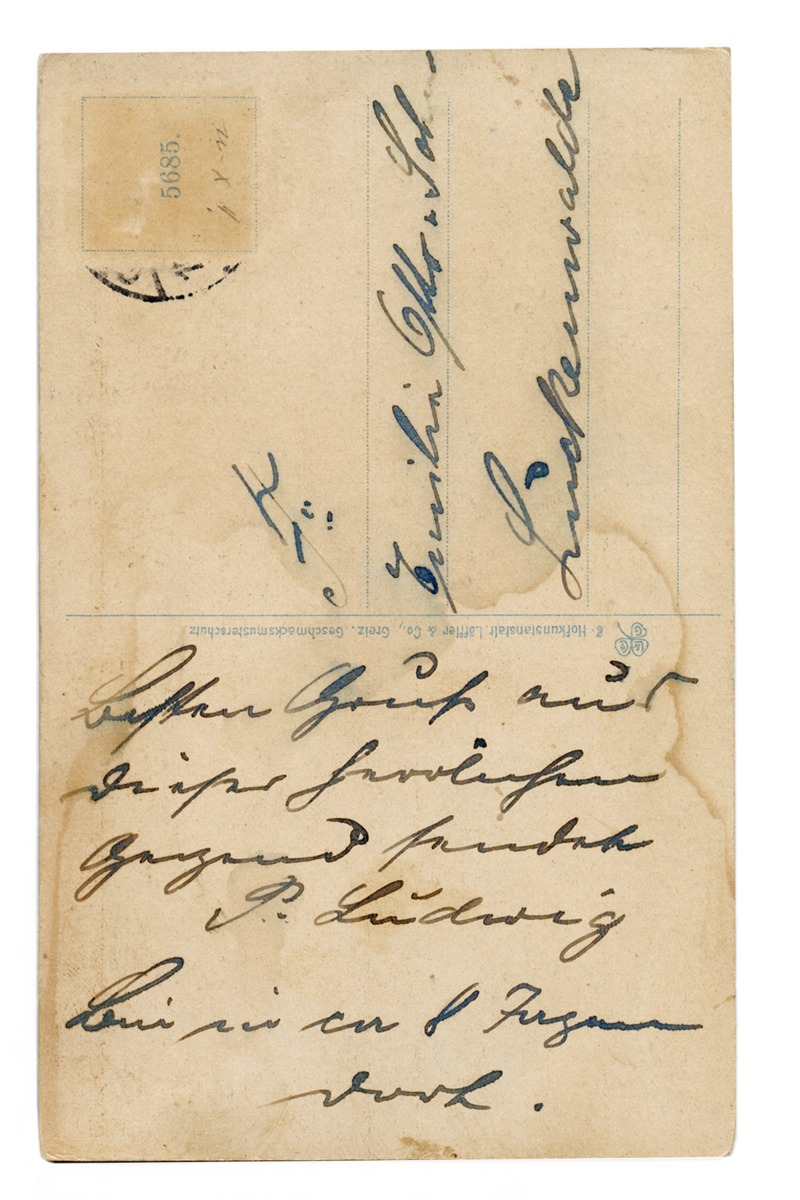 5685.
Emilie Otto
Luckenwalde
Hofkunstanstalt Löffler & Co., Greiz. Geschmacksmusterschutz
Besten Gruß aus
dieser herrlichen
Gegend sendet
P. Ludwig
Bin in ca 8 Tagen
dort.